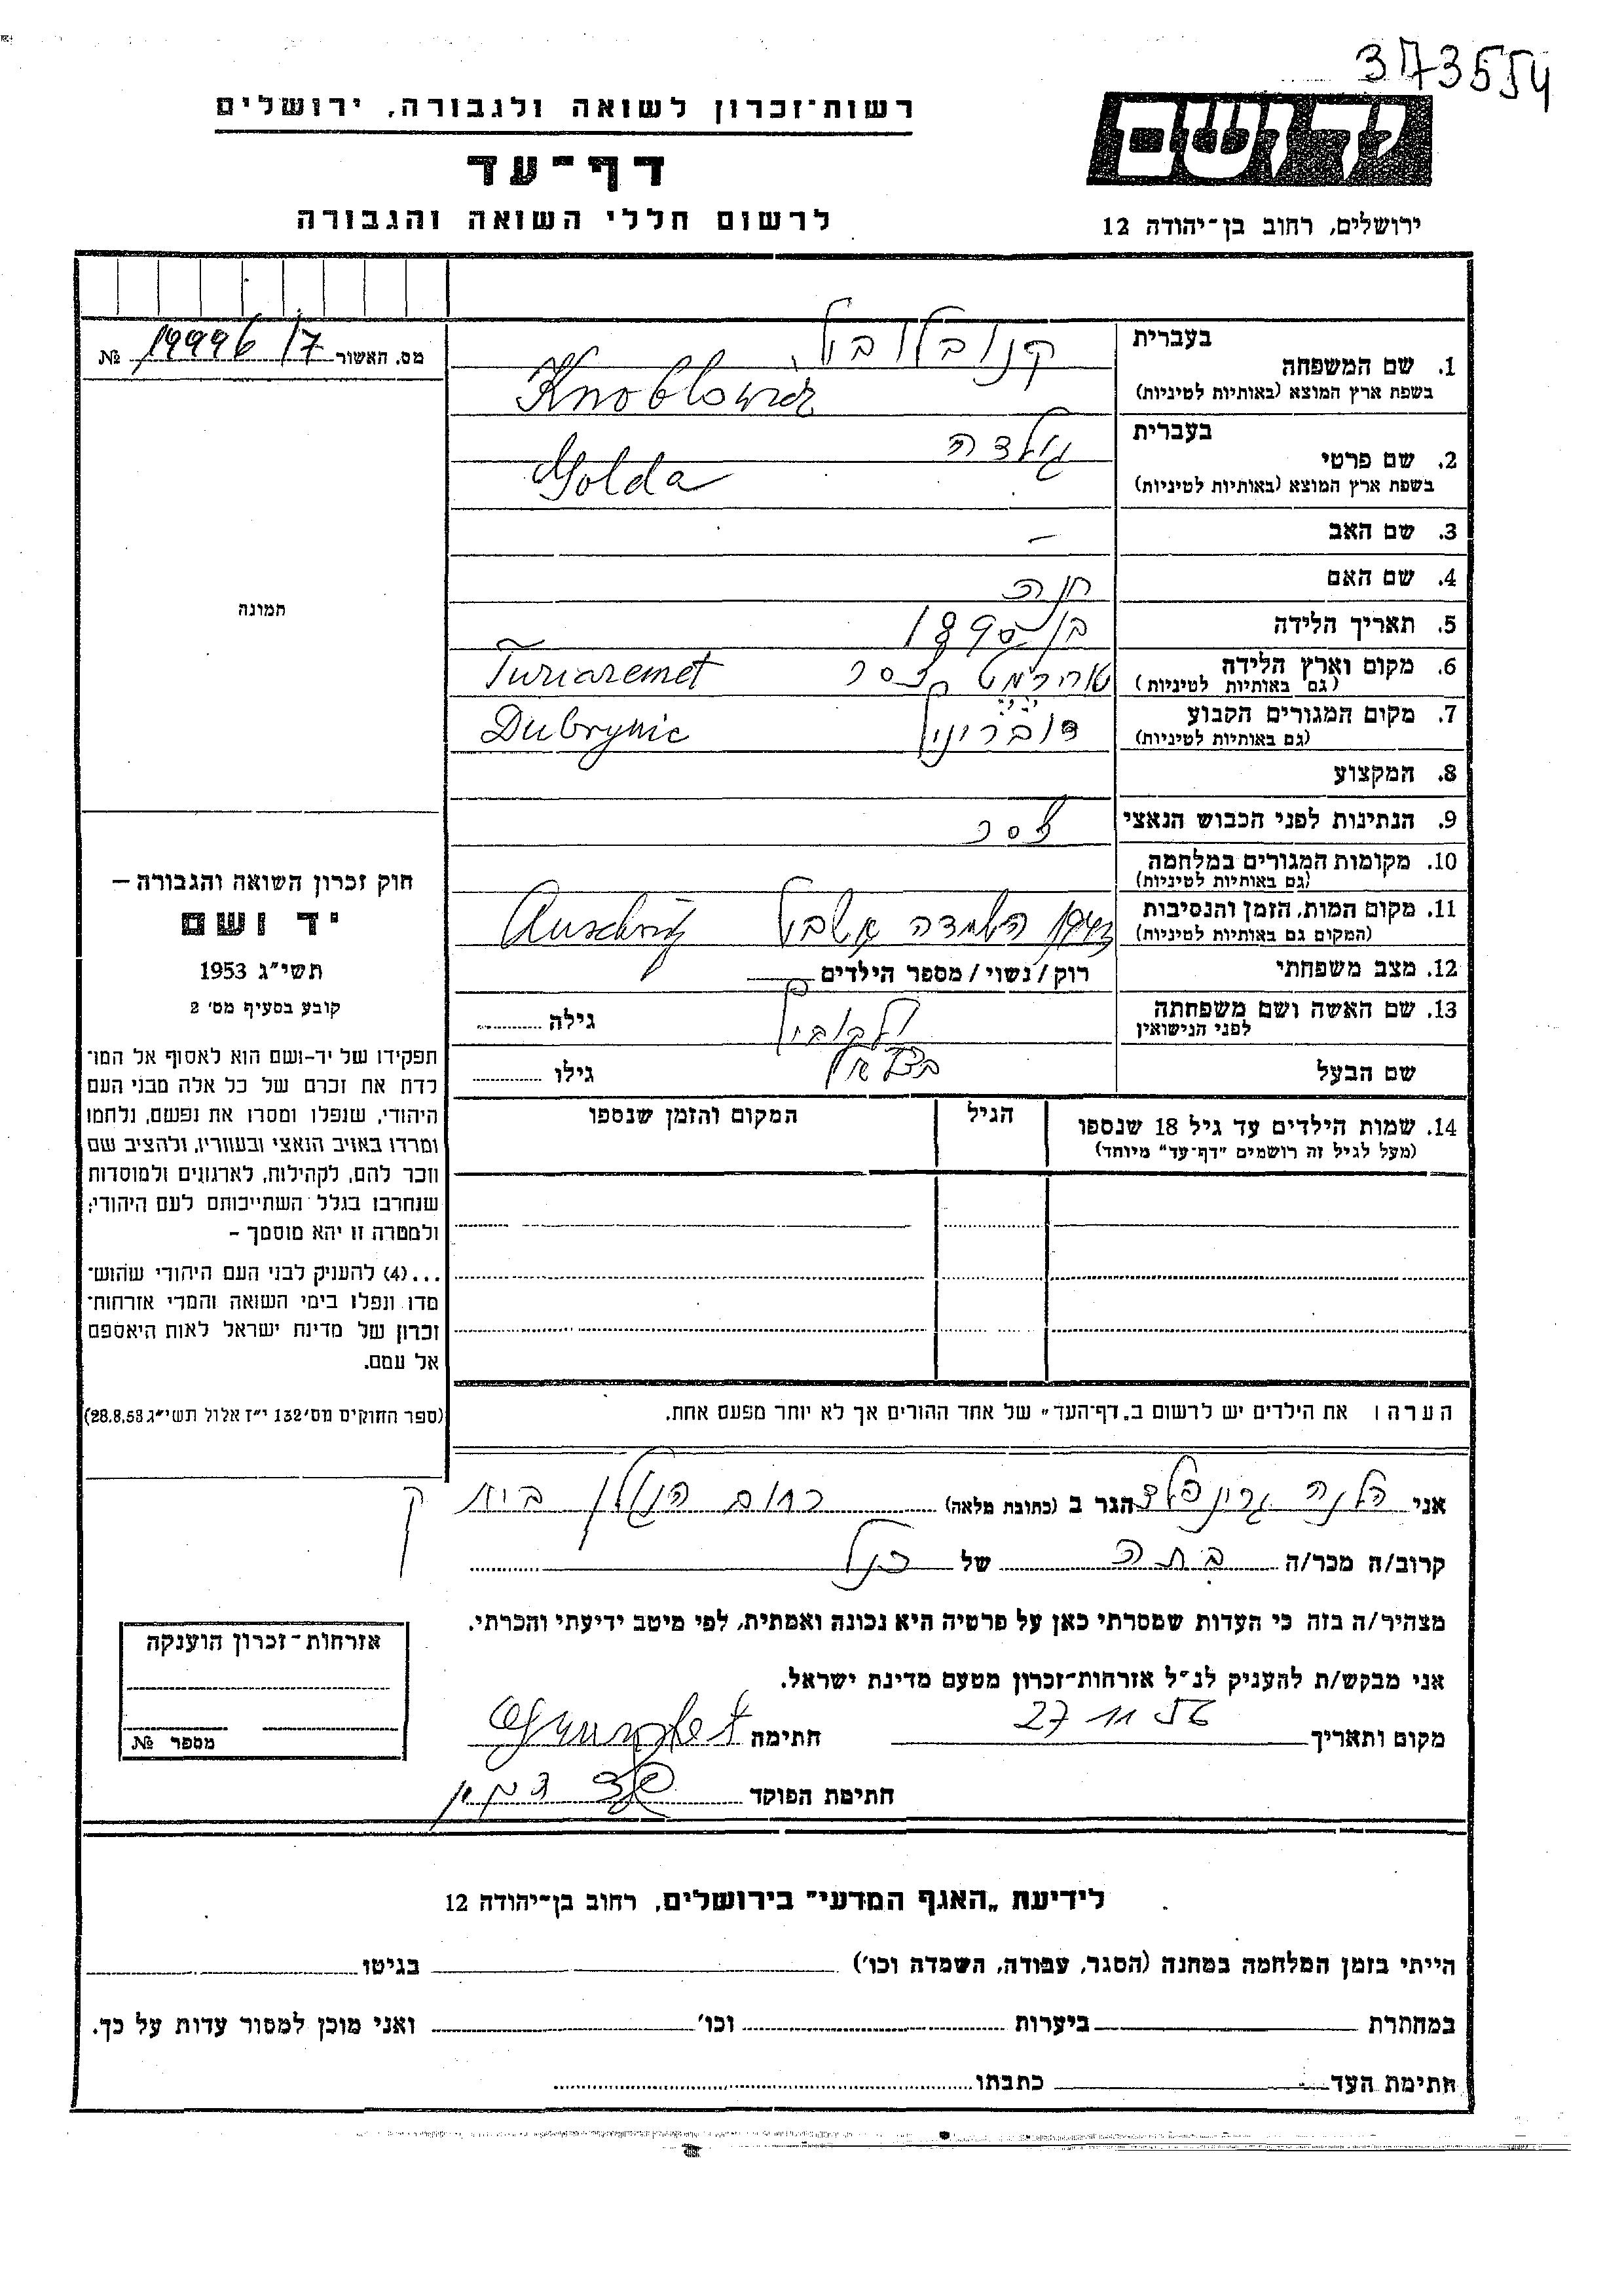 373554
רשות־זכרון לשואה ולגבורה, ירושלים
דף־עד
לרשום חללי השואה והגבורה
יד ושם
ירושלים, רחוב בן־יהודה 12
מס. האשור 19996/7 №
בעברית
1. שם המשפחה
בשפת ארץ המוצא (באותיות לטיניות)
Knoblowicz
בעברית גולדה
2. שם פרטי
בשפת ארץ המוצא (באותיות לטיניות)
Golda
3. שם האב –
4. שם האם חנה
5. תאריך הלידה 1890 בן
6. מקום וארץ הלידה
(גם באותיות לטיניות) Turiaremet
7. מקום המגורים הקבוע
(גם באותיות לטיניות) Dubrynic
8. המקצוע
9. הנתינות לפני הכבוש הנאצי צ׳כ
10. מקומות המגורים במלחמה
(גם באותיות לטיניות)
11. מקום המות, הזמן והנסיבות
(המקום גם באותיות לטיניות)
השמדה Auschwitz
12. מצב משפחתי רוק/נשוי/מספר הילדים
13. שם האשה ושם משפחתה
לפני הנישואין
גילה
שם הבעל
גילו
14. שמות הילדים עד גיל 18 שנספו
(מעל לגיל זה רושמים "דף־עד" מיוחד)
הגיל
המקום והזמן שנספו
הערה: את הילדים יש לרשום ב„דף־העד" של אחד ההורים אך לא יותר מפעם אחת.
תמונה
חוק זכרון השואה והגבורה –
יד ושם
תשי"ג 1953
קובע בסעיף מס׳ 2
תפקידו של יד-ושם הוא לאסוף אל המו־
לדת את זכרם של כל אלה מבני העם
היהודי, שנפלו ומסרו את נפשם, נלחמו
ומרדו באויב הנאצי ובעוזריו, ולהציב שם
וזכר להם, לקהילות, לארגונים ולמוסדות
שנחרבו בגלל השתייכותם לעם היהודי;
ולמטרה זו יהא מוסמך –
...(4) להעניק לבני העם היהודי שהוש־
מדו ונפלו בימי השואה והמרי אזרחות־
זכרון של מדינת ישראל לאות היאספם
אל עמם.
(ספר החוקים מס׳ 132 י"ז אלול תשי"ג 28.8.53)
אני הלנה גרינפלד הגר ב (כתובת מלאה) רחוב בית
קרוב/ה מכר/ה בתה של הנ"ל
מצהיר/ה בזה כי העדות שמסרתי כאן על פרטיה היא נכונה ואמתית, לפי מיטב ידיעתי והכרתי.
אני מבקש/ת להעניק לנ"ל אזרחות־זכרון מטעם מדינת ישראל.
מקום ותאריך 27 11 56 חתימה
חתימת הפוקד
אזרחות־זכרון הוענקה
מספר №
לידיעת „האגף המדעי" בירושלים, רחוב בן־יהודה 12
הייתי בזמן המלחמה במחנה (הסגר, עבודה, השמדה וכו׳) בגיטו
במחתרת ביערות וכו׳ ואני מוכן למסור עדות על כך.
חתימת העד כתבתו